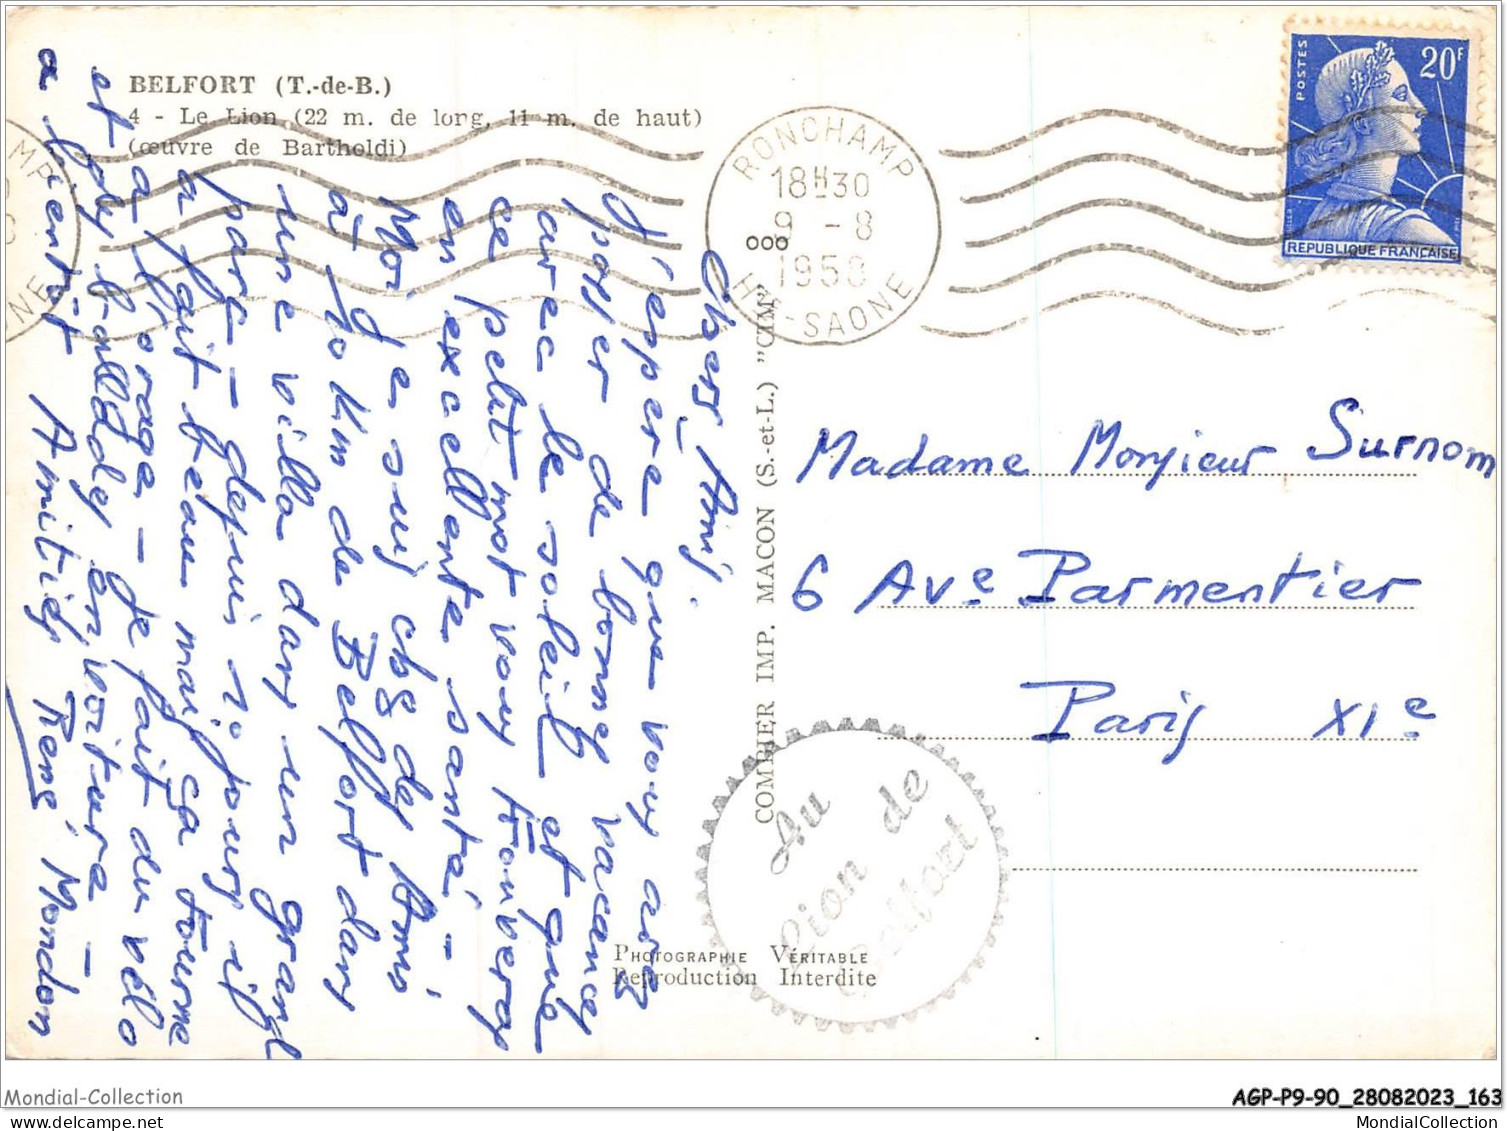 BELFORT (T.-de-B.)
4 - Le Lion (22 m. de long, 11 m. de haut)
(œuvre de Bartholdi)
Chers Amis,
J'espère que vous avez
passer de bonnes vacances
avec le soleil et que
ce petit mot vous trouveras
en excellente santé -
Moi je suis chez des Amis
à 20 Km de Belfort dans
une villa dans un grand
parc - depuis 10 jours il
a fait beau mais ça tourne
à l'orage - Je fait du vélo
et des ballades en voiture -
a bientôt Amitiés René Mondon
RONCHAMP
18H30
9 - 8
1958
Hte-SAONE
ooo
POSTES
20F
REPUBLIQUE FRANÇAISE
COMBIER IMP. MACON (S.-et-L.) "CIM"
Madame Monsieur Surnom
6 Ave Parmentier
Paris XIe
Au
Lion de
Belfort
Photographie Véritable
Reproduction Interdite
Mondial-Collection
AGP-P9-90_28082023_163
MondialCollection